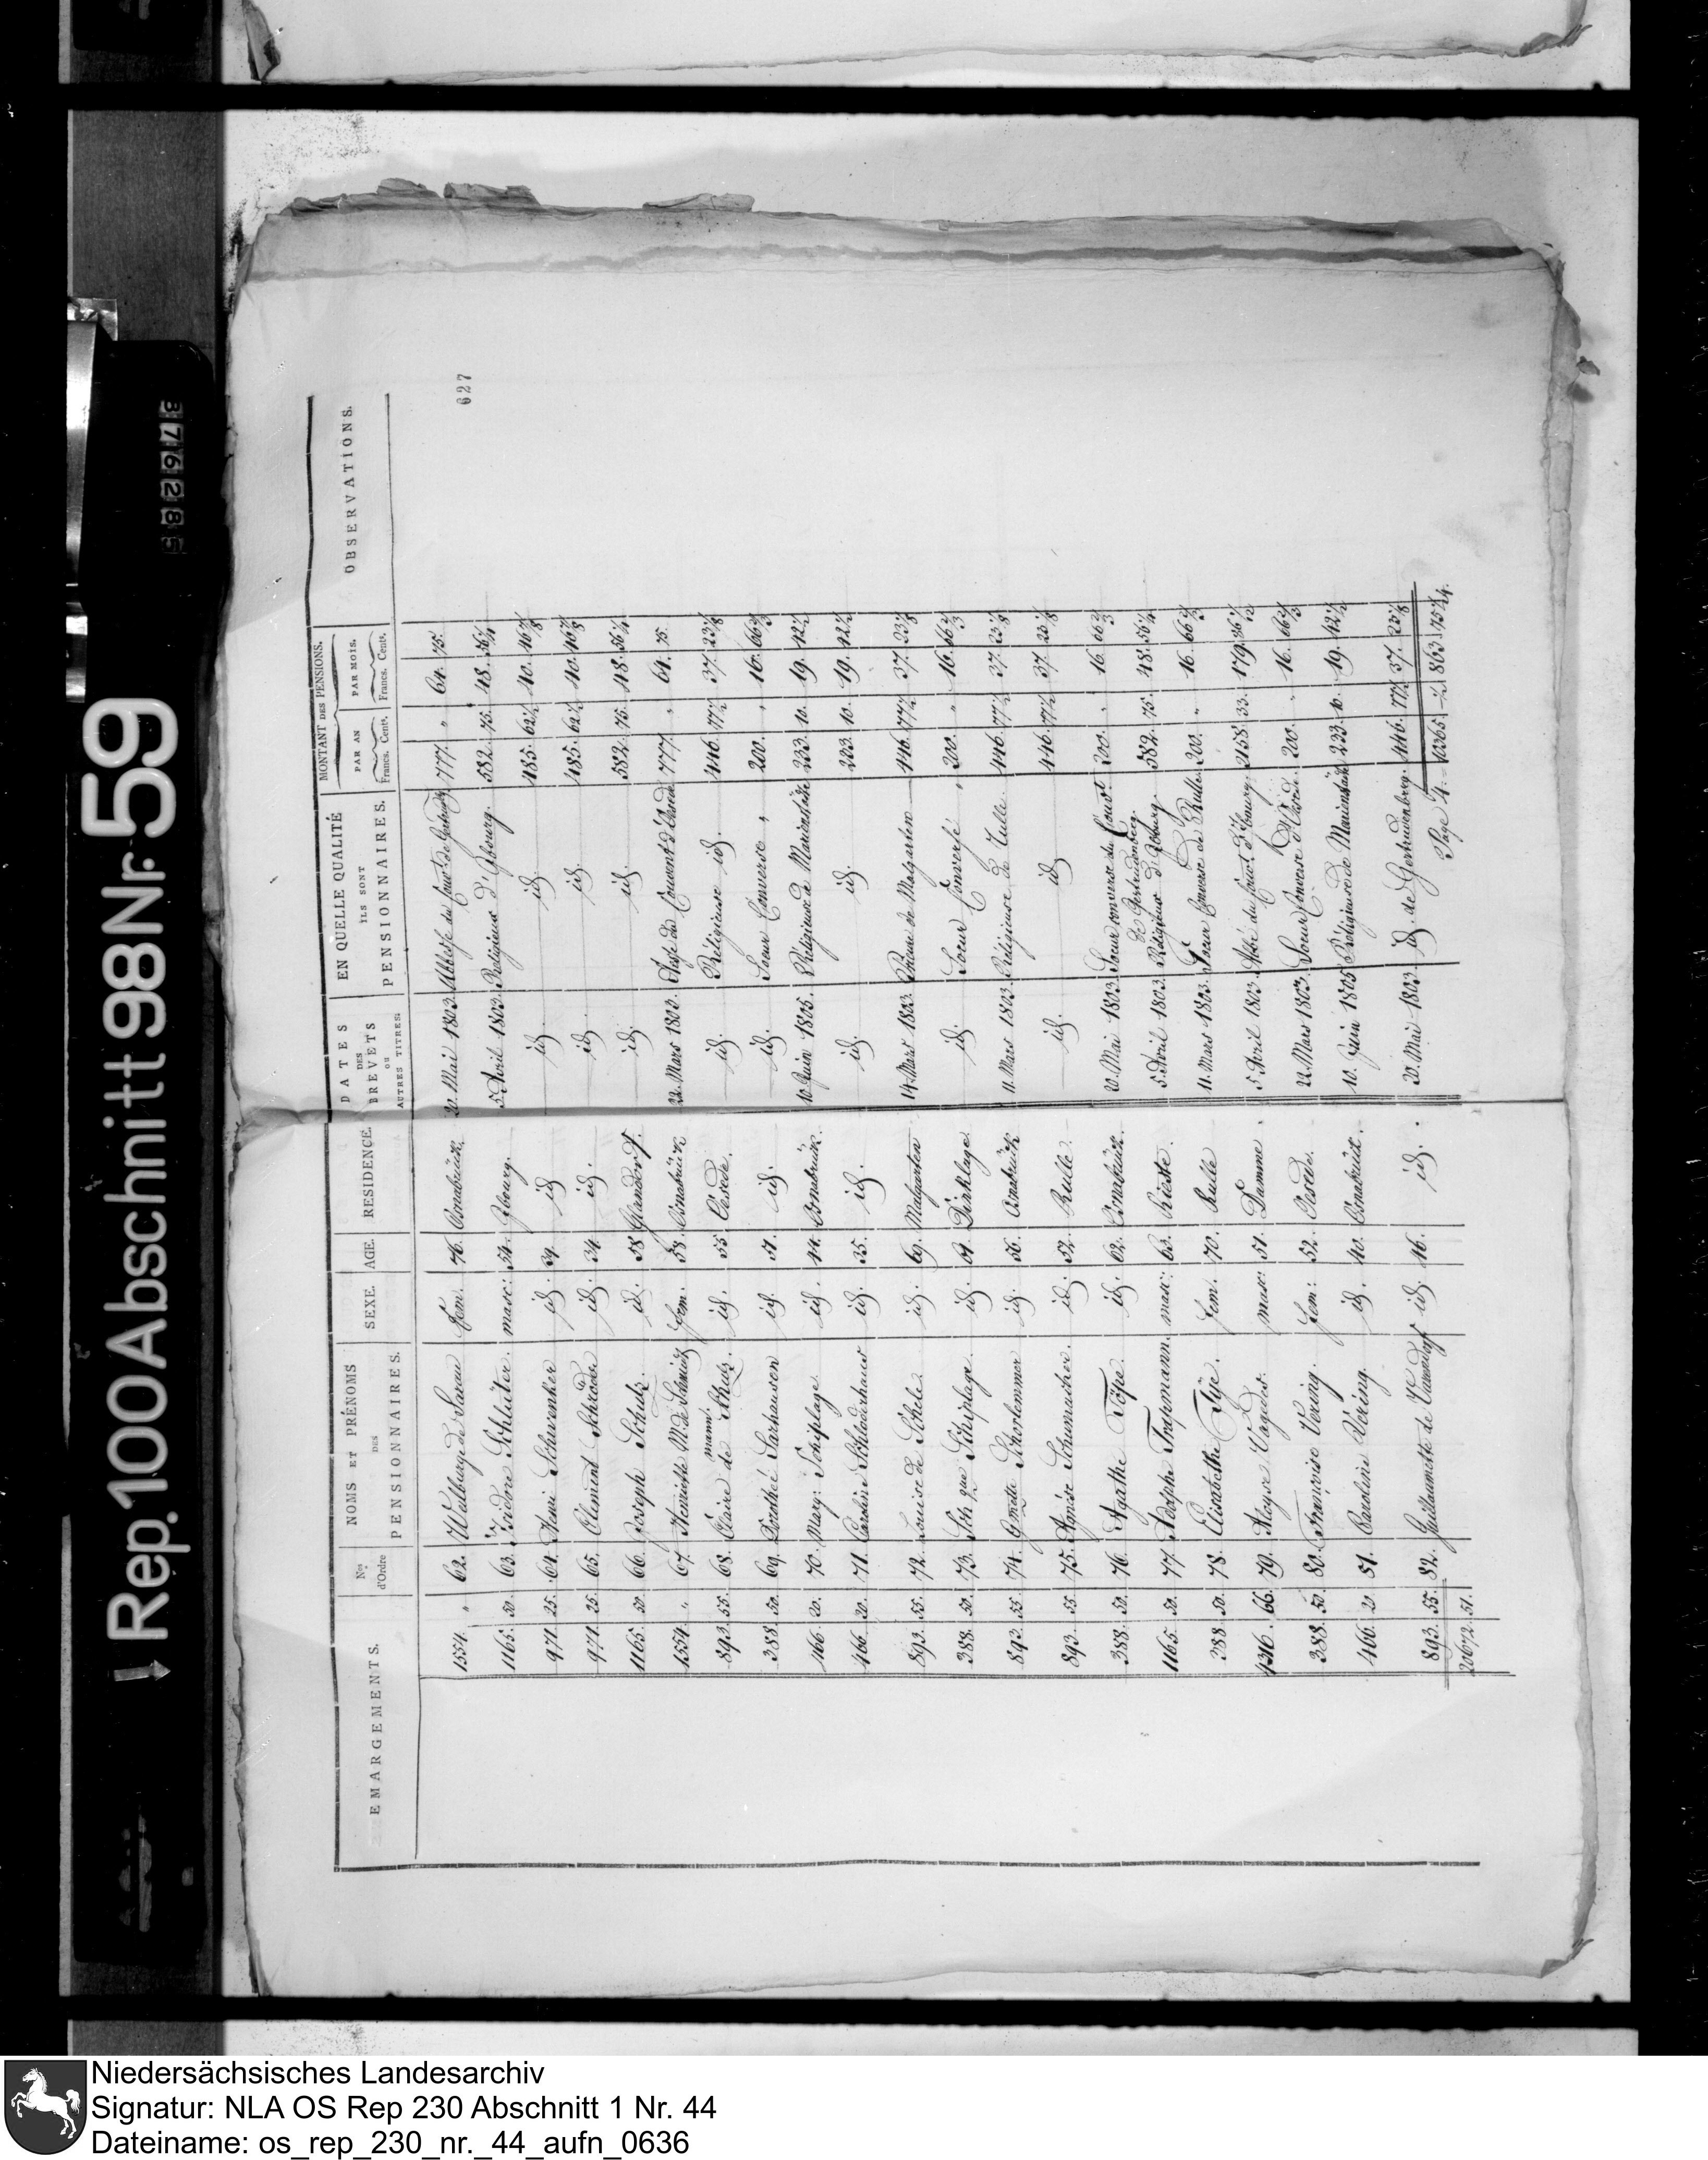 Rep. 100 Abschnitt 98 Nr. 59
3176285
627
EMARGEMENTS. Nos d'Ordre NOMS ET PRÉNOMS DES PENSIONNAIRES. SEXE. AGE. RESIDENCE. DATES DES BREVETS OU AUTRES TITRES. EN QUELLE QUALITÉ ILS SONT PENSIONNAIRES. MONTANT DES PENSIONS. PAR AN Francs. Cents. PAR MOIS. Francs. Cents. OBSERVATIONS.
1554. " 62. Walburge de Sarau fem. 76. Osnabrück. 20. Mai 1803. Abbesse du Couvt. de Gertrudg. 777. " 64. 75.
1165. 50. 63. Isidore Schlüter. masc: 54. Ybourg. 5. Avril 1803. Religieux d'Ybourg. 582. 75. 48. 56¼
971. 25. 64. Henri Schwenker id. 39. id id. id. 485. 62½ 40. 46⅞
971. 25. 65. Clement Schröder id. 34. id. id. id. 485. 62½ 40. 46⅞
1165. 50. 66. Joseph Schultz. id. 58. Glandorf. id. id. 582. 75. 48. 56¼
1554. " 67. Henriette M. de Schmisig fem. 53. Osnabrück 22. Mars 1803. du Couvent d'Oesede 777. " 64. 75.
893. 55. 68. Claire de id. 55. Oesede. id. Réligieuse id. 446. 77½ 37. 23⅛
388. 50. 69. Dorothée Sarhausen id. 51. id. id. Soeur Converse " 200. " 16. 66⅔
466. 20. 70. Marg: Schiplage. id. 44. Osnabrück. 10. Juin 1805. Réligieuse de Marienstäde 233. 10. 19. 42½
466. 20. 71. Caroline Schladerhauer id. 35. id. id. id. 233. 10. 19. 42½
893. 55. 72. Louise de Schele. id. 69. Malgarten 14. Mars 1803. Prieure de Malgarten 446. 77½ 37. 23⅛
388. 50. 73. Schiplage. id. 61. Dinklage. id. Soeur Converse " 200. " 16. 66⅔
893. 55. 74. Schorlemmer id. 56. Osnabrück 11. Mars 1803. Réligieuse de Rulle. 446. 77½ 37. 23⅛
893. 55. 75. Agnése Schumacher. id. 52. Rulle. id. id 446. 77½ 37. 23⅛
388. 50. 76. Agathe Töpe. id. 62. Osnabrück. 20. Mai 1803. Soeur converse du Couvt. de Gertrudenberg. 200. " 16. 66⅔
1165. 50. 77. Adolphe Trapmann. masc: 63. Rieste. 5. Avril 1803. Réligieux d'Ybourg. 582. 75. 48. 56¼
388. 50. 78. Elisabethe Tije. fem. 70. Rulle 11. Mars 1803. Soeur Converse de Rulle. 200. " 16. 66⅔
4316. 66. 79. Vagedes. masc: 51. Damme. 5. Avril 1803. Abbé du Couvt. d'Ybourg. 2158. 33. 179. 86½
388. 50. 80. Françoise Vering. fem: 52. Oesede. 22. Mars 1803. Soeur Converse d'Oesede. 200. " 16. 66⅔
466. 20 81. Caroline Vering. id. 40. Osnabrück. 10. Juin 1805. Réligieuse de Marienstäde 233. 10. 19. 42½
893. 55. 82. Guillaumette de id. 46. id. 20. Mai 1803. id. de Gertrudenberg. 446. 77½ 37. 23⅛
20672. 51. Page 4. 10365. 863. 75¼.
Niedersächsisches Landesarchiv
Signatur: NLA OS Rep 230 Abschnitt 1 Nr. 44
Dateiname: os_rep_230_nr._44_aufn_0636